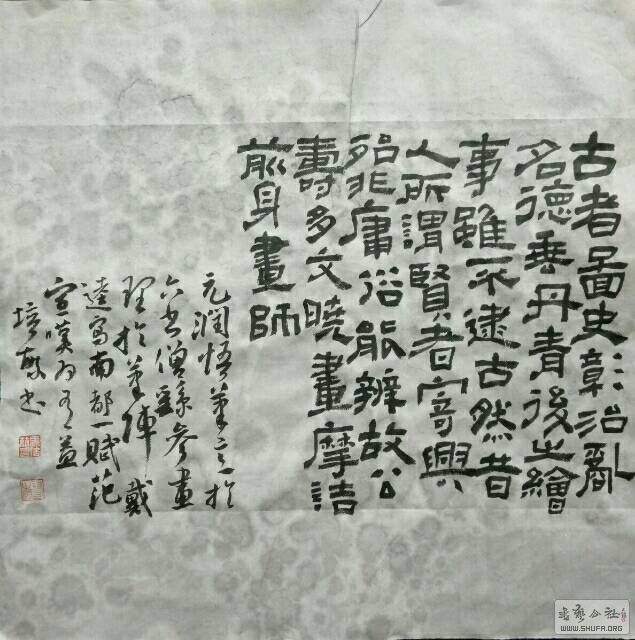 古者啚史彰治亂
名德垂丹青後之繪
事雖不逮古然昔
人所謂賢者寄興
殆非庸俗能辨故公
壽多文曉畫摩詰
前身畫師
元潤悟筆意於
六书僧繇參畫
理於筆陣戴
逵寫南都一賦范
宣嘆為有益
培书
书艺公社
WWW.SHUFA.ORG